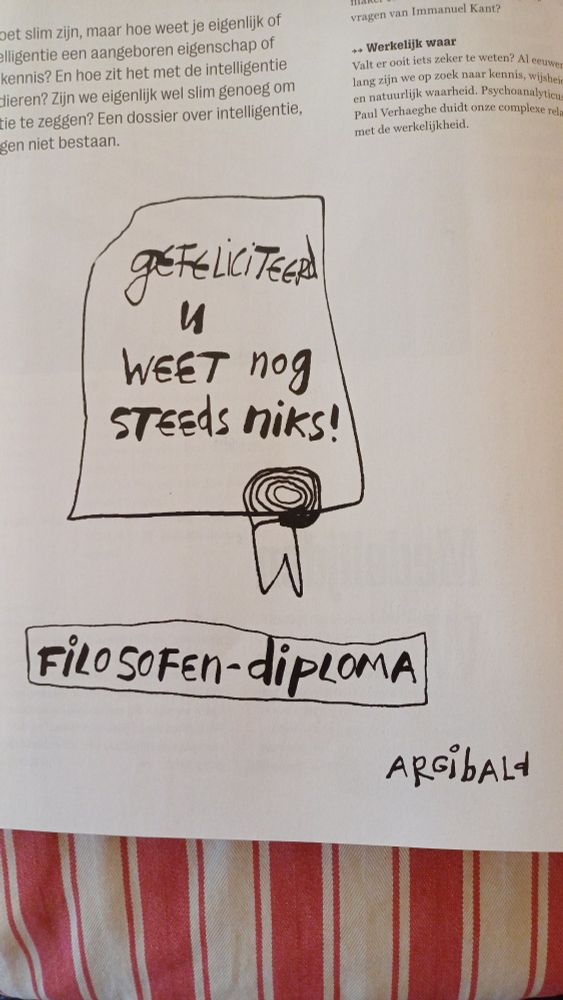 oet slim zijn, maar hoe weet je eigenlijk of
elligentie een aangeboren eigenschap of
kennis? En hoe zit het met de intelligentie
dieren? Zijn we eigenlijk wel slim genoeg om
tie te zeggen? Een dossier over intelligentie,
gen niet bestaan.
vragen van Immanuel Kant?
↔ Werkelijk waar
Valt er ooit iets zeker te weten? Al eeuwen
lang zijn we op zoek naar kennis, wijshei
en natuurlijk waarheid. Psychoanalyticus
Paul Verhaeghe duidt onze complexe rela
met de werkelijkheid.
GEFELICITEERD
U
WEET nog
STEEds niks!
FiLOSOFEn-dipLOMA
ARGibALd